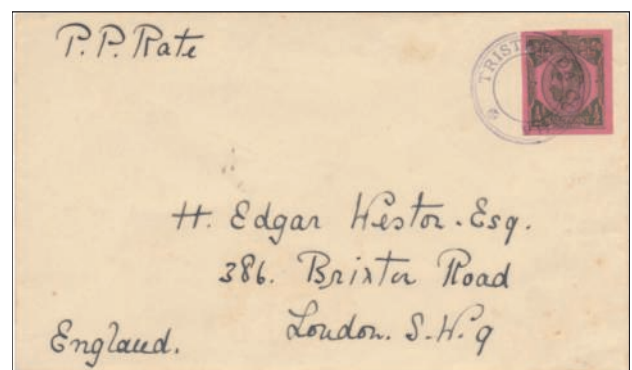 P. P. Rate
TRISTA
H. Edgar Weston. Esq.
386. Brixton Road
London. S.W.9
England.